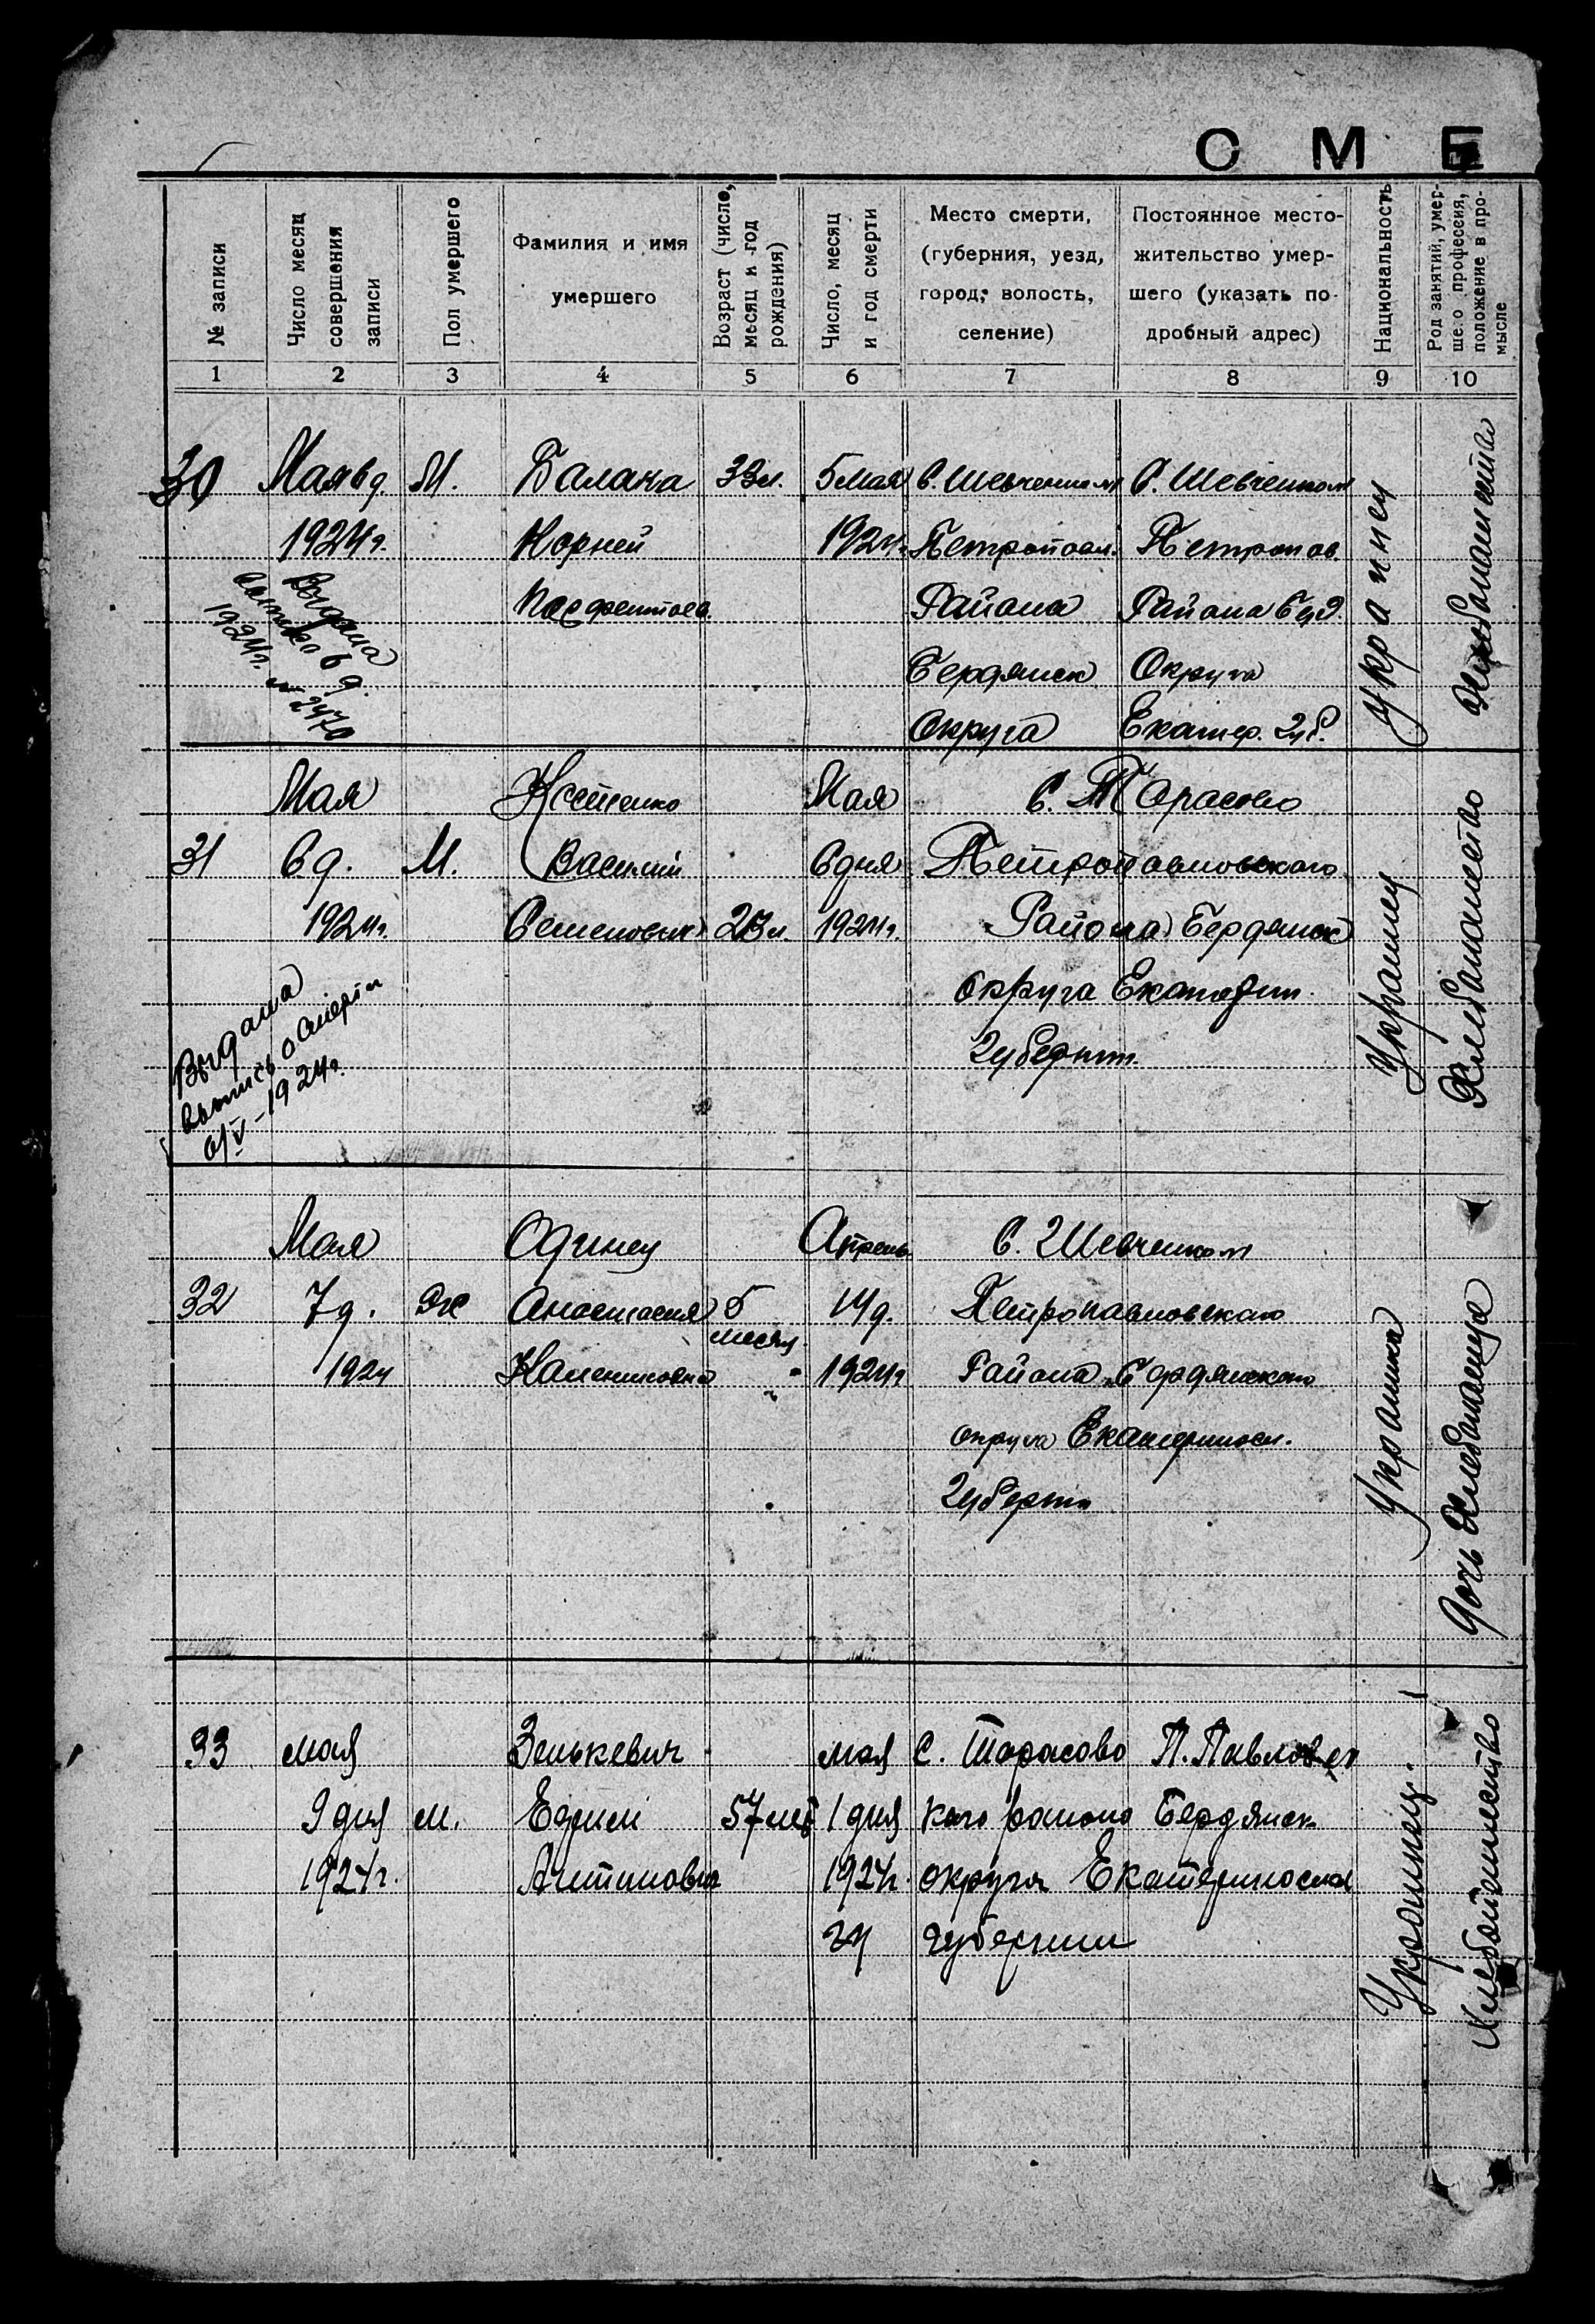 СМЕ
№ записи
Число месяц
совершения
записи
Пол умершего
Фамилия и имя
умершего
Возраст (число,
месяц и год
рождения)
Число, месяц
и год смерти
Место смерти,
(губерния, уезд,
город, волость,
селение)
Постоянное место-
жительство умер-
шего (указать по-
дробный адрес)
Национальность
Род занятий, умер-
ше.о профессия,
положение в про-
мысле
1 2 3 4 5 6 7 8 9 10
30 Мая 6 д. М. Балака 33 л. 5 мая С.
1924 г. Корней 1924 Петропавл. Петропав
Района Района
Бердянск Округа
Округа Екатер. губ.
Украинец
Выдана
1924 г. № 2470
Мая Мая С. Тарасово
31 6 д. М. Василий 6 дня Петропавловского
1924 г. 1924 г. Района Бердянск
округа Екатерин.
Губернии
Украинец
Хлебопашество
Выдана
выпись о смерти
6/V-1924 г.
Мая Одинец Апрель С.
32 7 д. Ж Анастасия 5 14 д. Петропавловского
месяц
1924 1924 г Района Бердянского
округа Екатериносл.
Губернии
Украинка
Дочь Хлебопашца
33 мая Зенькевич мая С. Тарасово П. Павловс
9 дня м. Ефим 57 лет 1 дня кого района Бердянск
1924 г. 1924 г. округа Екатеринослав
губернии
Украинец